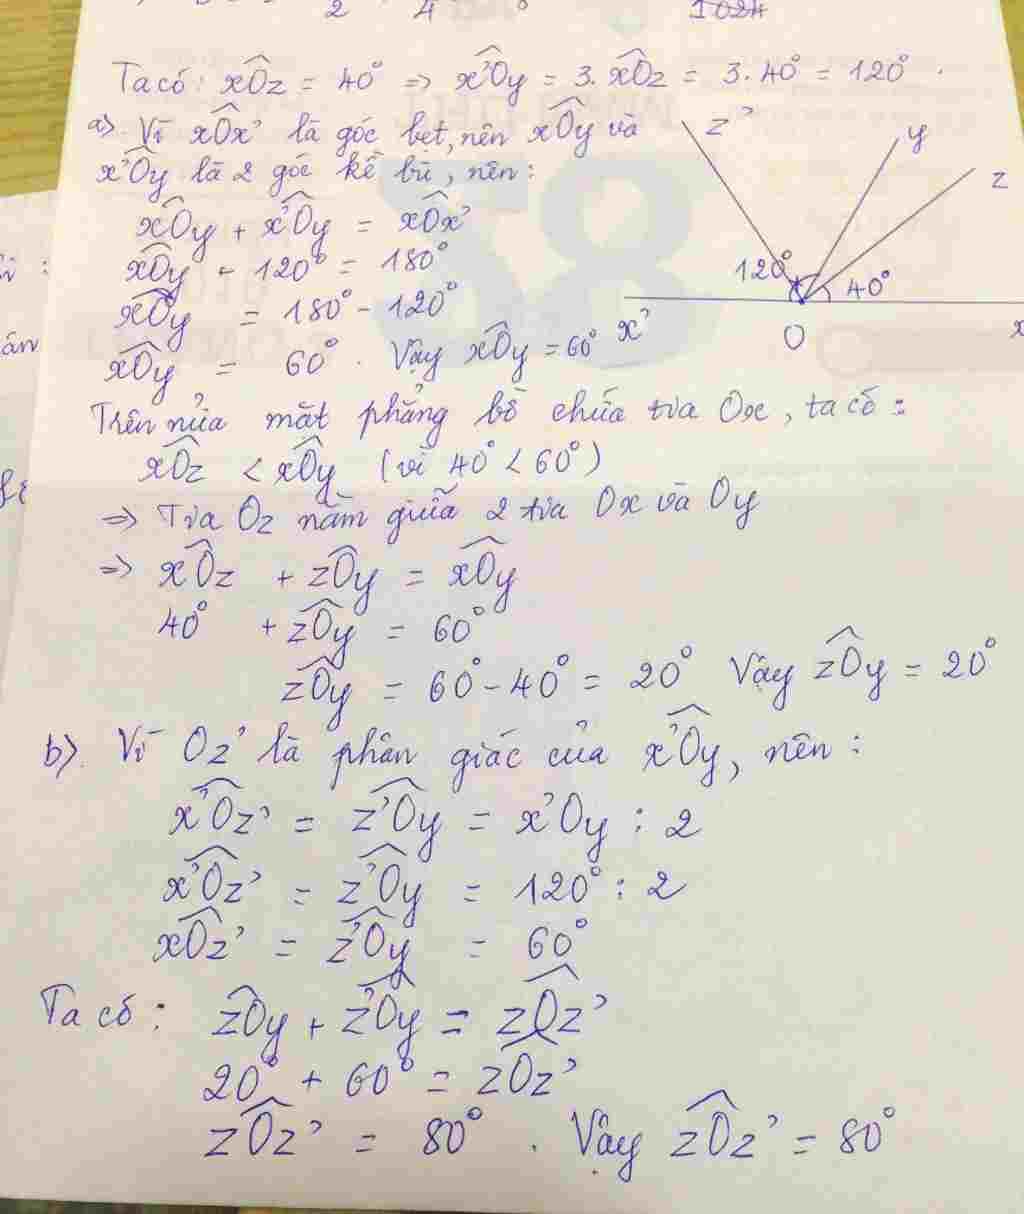 2 4 1024
Ta có: xÔz = 40° => x'Ôy = 3. xÔz = 3.40° = 120°.
a) Vì xÔx' là góc bẹt, nên xÔy và
x'Ôy là 2 góc kề bù, nên:
xÔy + x'Ôy = xÔx'
xÔy + 120° = 180°
xÔy = 180° - 120°
xÔy = 60°. Vậy xÔy = 60°
z'
y
z
120°
40°
x'
O
x
Trên nửa mặt phẳng bờ chứa tia Ox, ta có:
xÔz < xÔy (vì 40° < 60°)
=> Tia Oz nằm giữa 2 tia Ox và Oy
=> xÔz + zÔy = xÔy
40° + zÔy = 60°
zÔy = 60° - 40° = 20° Vậy zÔy = 20°
b). Vì Oz' là phân giác của x'Ôy, nên:
x'Ôz' = z'Ôy = x'Oy : 2
x'Ôz' = z'Ôy = 120° : 2
xÔz' = z'Ôy = 60°
Ta có: zÔy + z'Ôy = zÔz'
20° + 60° = zÔz'
zÔz' = 80°. Vậy zÔz' = 80°